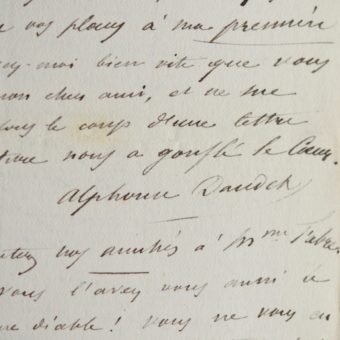 vos places à ma première
moi bien vite que vous
mon cher ami, et ne me
le coup d'une lettre
nous a gonflé le Cœur.
Alphonse Daudet
nos amitiés à Mme
vous l'avez vous aussi
diable! vous ne vous en